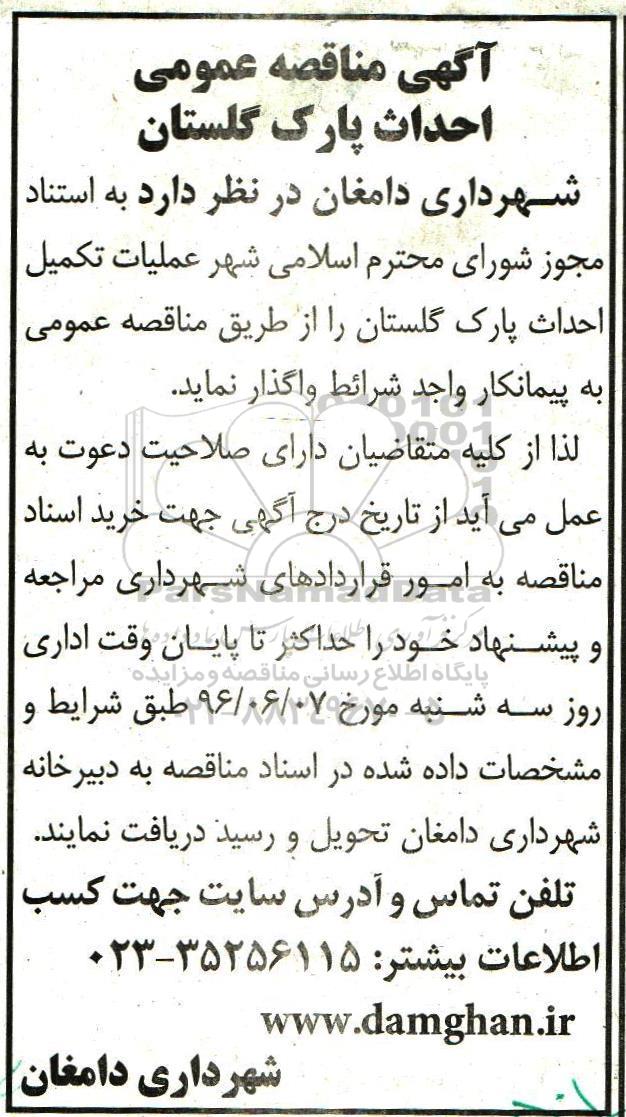 آگهی مناقصه عمومی
احداث پارک گلستان
شهرداری دامغان در نظر دارد به استناد
مجوز شورای محترم اسلامی شهر عملیات تکمیل
احداث پارک گلستان را از طریق مناقصه عمومی
به پیمانکار واجد شرائط واگذار نماید.
لذا از کلیه متقاضیان دارای صلاحیت دعوت به
عمل می آید از تاریخ درج آگهی جهت خرید اسناد
مناقصه به امور قراردادهای شهرداری مراجعه
ParsNamadData
و پیشنهاد خود را حداکثر تا پایان وقت اداری
پایگاه اطلاع رسانی مناقصه و مزایده
روز سه شنبه مورخ ۹۶/۰۶/۰۷ طبق شرایط و
مشخصات داده شده در اسناد مناقصه به دبیرخانه
شهرداری دامغان تحویل و رسید دریافت نمایند.
تلفن تماس و آدرس سایت جهت کسب
اطلاعات بیشتر: ۳۵۲۵۶۱۱۵-۰۲۳
www.damghan.ir
شهرداری دامغان